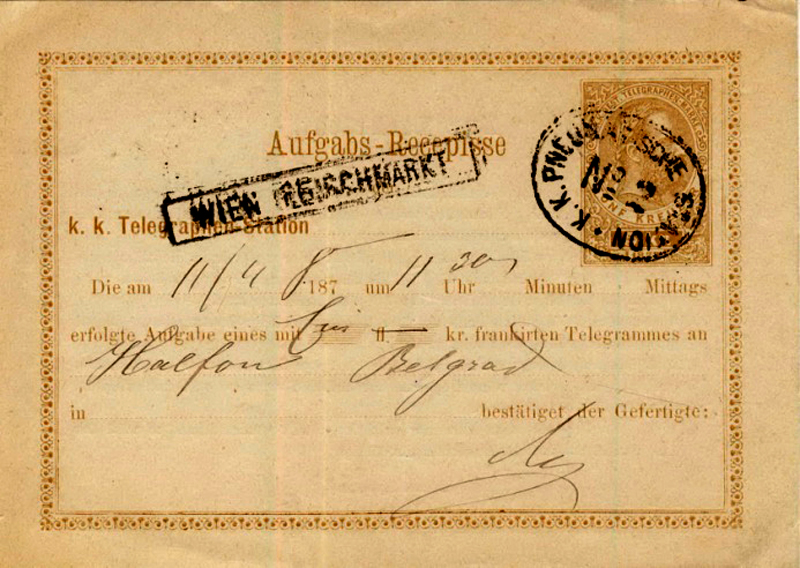 Aufgabs-Recepisse
WIEN FLEISCHMARKT
K. K. PNEUMATISCHE STATION
No 2
TELEGRAPHEN
FÜNF KREUZER
k. k. Telegraphen-Station
Die am 11/4 8 187 um 11 30 Uhr Minuten Mittags
erfolgte Aufgabe eines mit fl. — kr. frankirten Telegrammes an
Halfon Belgrad
in bestätiget der Gefertigte: